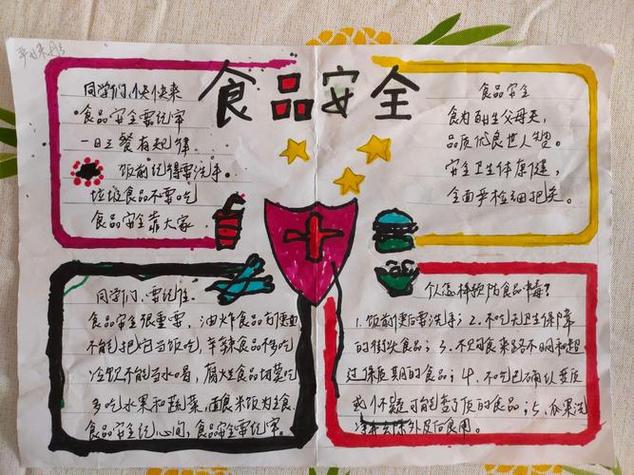 食品安全
同学们，快快来
食品安全要纪牢
一日三餐有规律.
饭前纪得要洗手。
垃圾食品不要吃
食品安全靠大家.
食品安全
食为民生父母天,
品质优良世人望。
安全卫生体康健，
全面严检细把关。
同学们、要纪住.
食品安全很重要，油炸食品方便面
不能把它当饭吃，辛辣食品少吃
冷饮不能当水喝，腐烂食品切莫吃
多吃水果和蔬菜，面食米饭为主食.
食品安全纪心间，食品安全要纪牢。
个人怎样预防食品中毒？
1.饭前便后要洗手；2.不吃无卫生保障
的街头食品；3.不购食来路不明和超
过保质期的食品；4.不吃已确认变质
或怀疑可能变质的食品；5.瓜果洗
净去除外皮后食用。